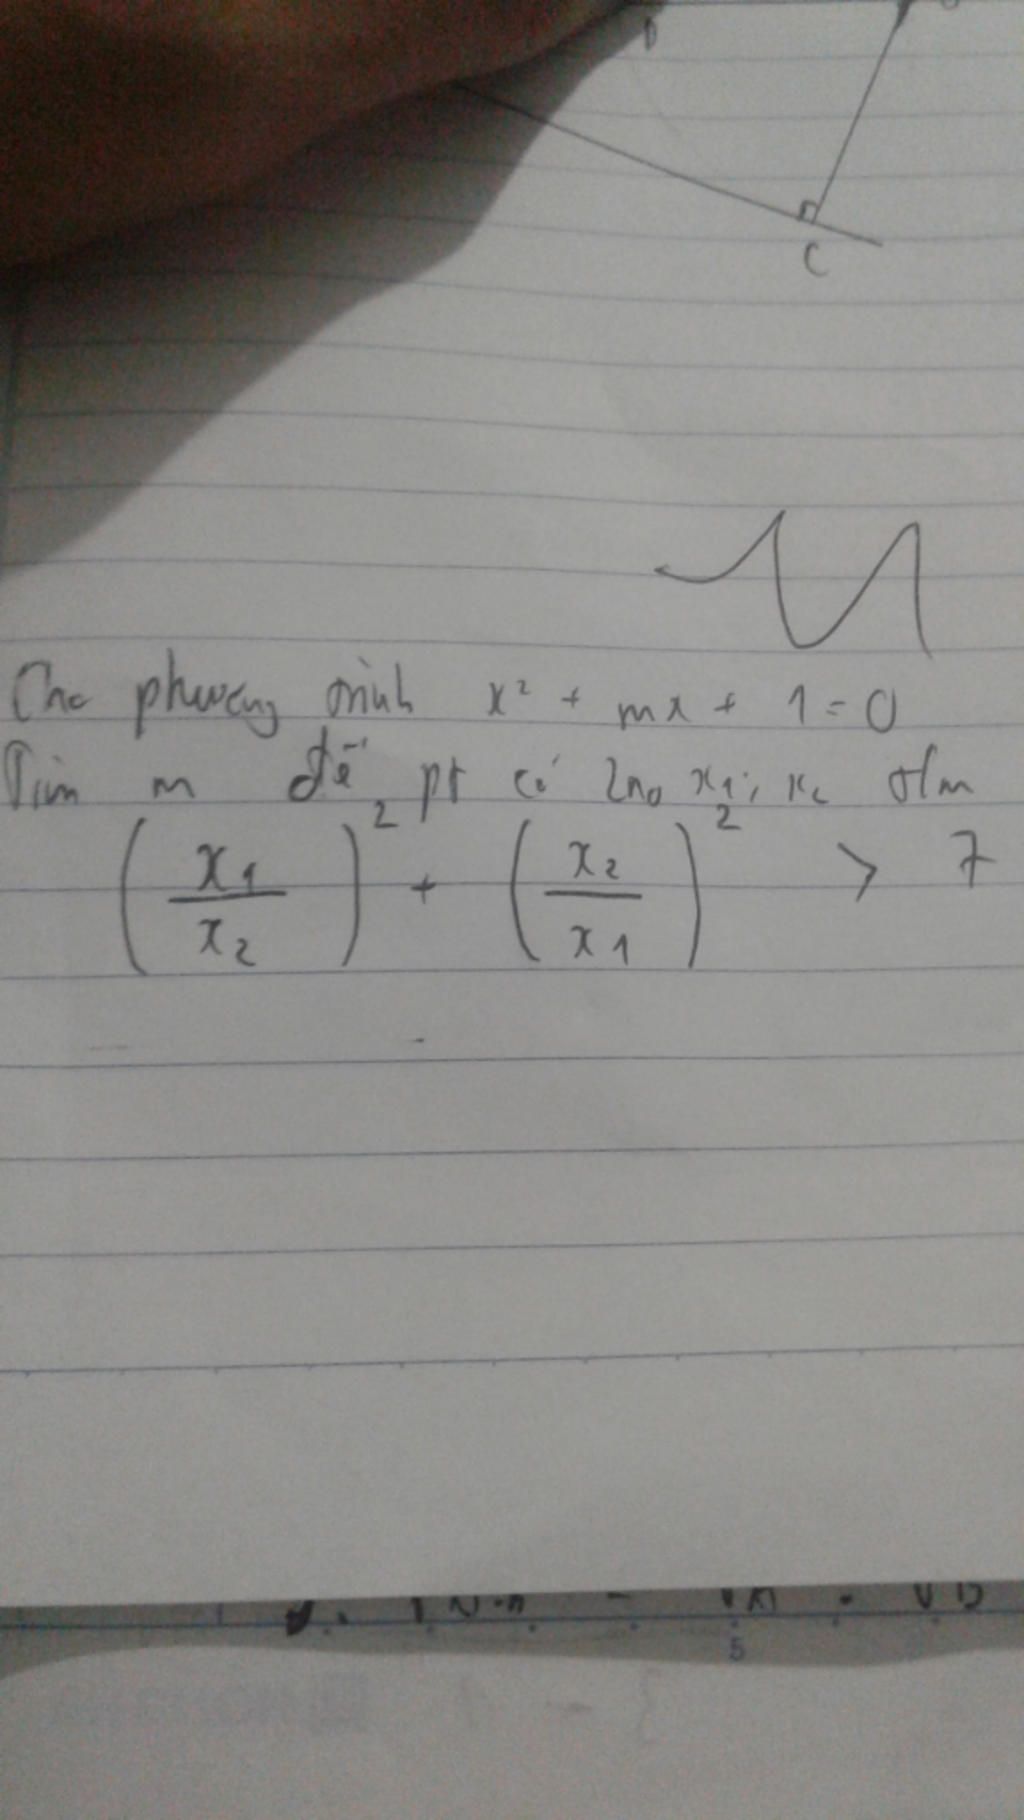 C
Cho phương trình x² + mx + 1 = 0
Tìm m để pt có 2no x₁; x₂ t/m
(x₁/x₂)² + (x₂/x₁)² > 7
5